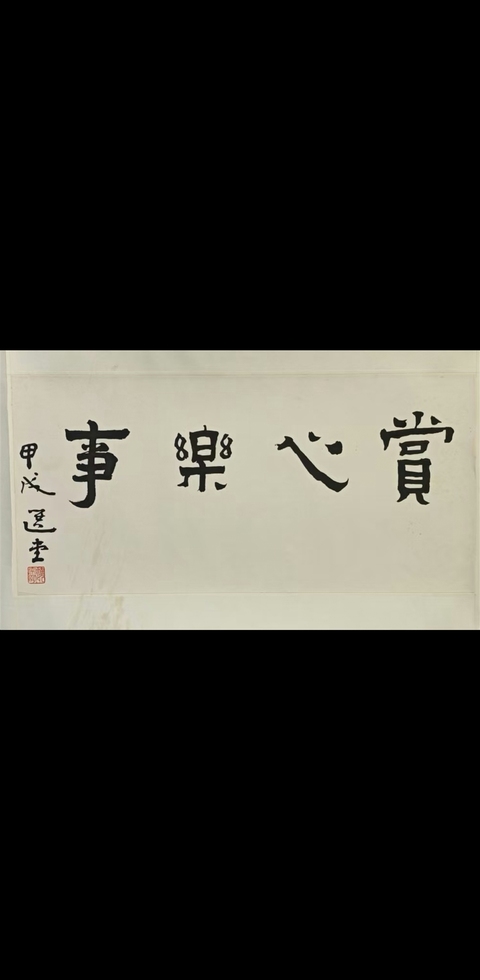 賞心樂事
甲戌選堂